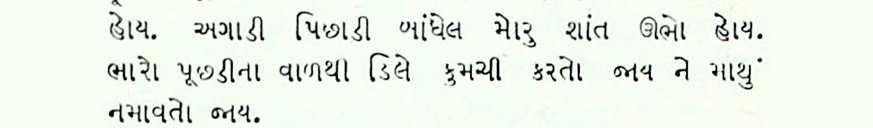 હોય. અગાડી પિછાડી બાંધેલ મોરુ શાંત ઊભો હોય.
ભારો પૂછડીના વાળથી ડિલે કુમચી કરતો જાય ને માથું
નમાવતો જાય.